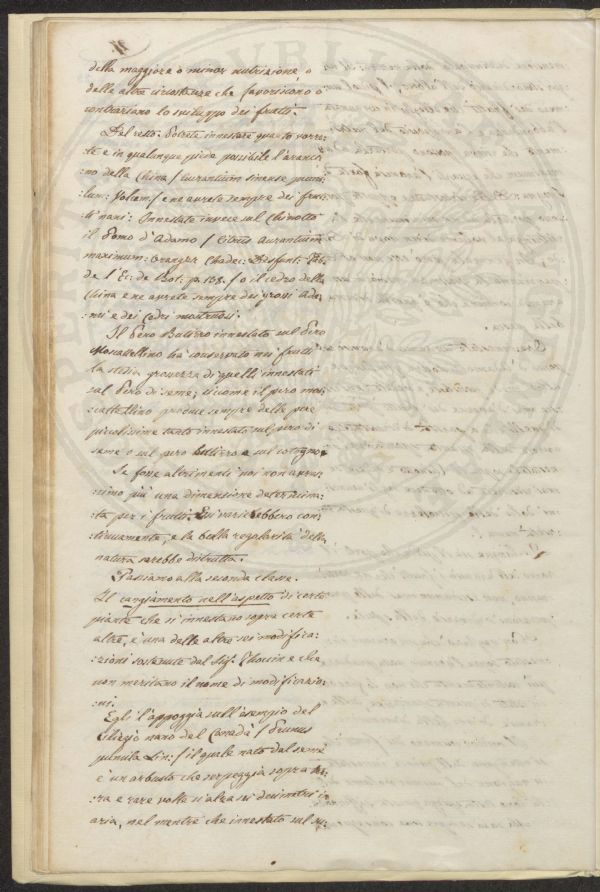 della maggiore o minor nutrizione, o
delle altre circostanze che favoriscono o
contrariano lo sviluppo dei frutti.
Del resto: Potrete innestare quanto vorre:
:te e in qualunque piede possibile l'aranci:
:no della China / aurantium sinense pumi:
lum: Volcam: / e ne avrete sempre dei frut:
ti nani: Innestate invece sul Chinotto
il Pomo d'Adamo / Citrus Aurantium
maximum: oranger Chadec: Desfont:
de l'Ec: de Bot: p. 138. / o il cedro della
China e ne avrete sempre dei grossi Ada:
:mi e dei Cedri mostruosi.
Il Pero Butirro innestato sul Pero
Moscatellino ha conservato nei frutti
la stessa grossezza di quelli innestati
sul Pero di seme; siccome il pero mo:
scattellino produce sempre delle pere
piccolissime tanto innestato sul pero di
seme o sul pero butirro e sul cotogno.
Se fosse altrimenti noi non avres:
simo più una dimensione determina:
:ta per i frutti. Essi varierebbero con:
tinuamente, e la bella regolarità della
natura sarebbe distrutta.
Passiamo alla seconda classe.
Il cangiamento nell'aspetto di certe
piante che si innestano sopra certe
altre, è una delle altre sei modifica:
:zioni sostenute dal Sig.r Thouin e che
non meritano il nome di modificazio:
:ni.
Egli l'appoggia sull'esempio del
Ciliegio nano del Canadà / Prunus
pumila Lin: / il quale nato dal seme
è un arbusto che serpeggia sopra ter:
:ra e rare volte si alza sei decimetri in
aria, nel mentre che innestato sul su: